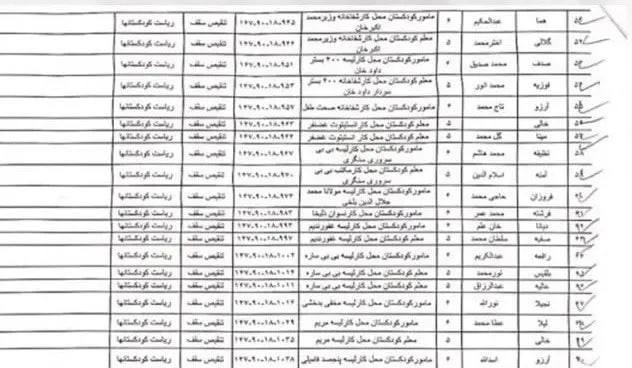 هما عبدالحکیم ۶ مامورکودکستان محل کارشفاخانه وزیرمحمد اکبرخان ۱۴۷-۹۰-۱۸-۹۴۵ تنقیص سقف ریاست کودکستانها
گلالی اخترمحمد ۵ معلم کودکستان محل کارشفاخانه وزیرمحمد اکبرخان ۱۴۷-۹۰-۱۸-۹۴۶ تنقیص سقف ریاست کودکستانها
صدف محمد صدیق ۶ مامورکودکستان محل کارلیسه ۴۰۰ بستر داود خان ۱۴۷-۹۰-۱۸-۹۵۱ تنقیص سقف ریاست کودکستانها
فوزیه محمد انور ۵ معلم کودکستان محل کارشفاخانه ۴۰۰ بستر سردار داود خان ۱۴۷-۹۰-۱۸-۹۵۳ تنقیص سقف ریاست کودکستانها
آرزو تاج محمد ۶ مامورکودکستان محل کارشفاخانه صحت طفل ۱۴۷-۹۰-۱۸-۹۵۷ تنقیص سقف ریاست کودکستانها
خالی ۵ معلم کودکستان محل کار انستیتوت غضنفر ۱۴۷-۹۰-۱۸-۹۶۳ تنقیص سقف ریاست کودکستانها
مینا گل محمد ۵ معلم کودکستان محل کار انستیتوت غضنفر تنقیص سقف ریاست کودکستانها
نظیفه محمد هاشم ۶ مامورکودکستان محل کارلیسه بی بی سروری سنگری ۱۴۷-۹۰-۱۸-۹۶۷ تنقیص سقف ریاست کودکستانها
آمنه اسلام الدین ۵ معلم کودکستان محل کارمکتب بی بی سروری سنگری ۱۴۷-۹۰-۱۸-۹۷۰ تنقیص سقف ریاست کودکستانها
فروزان حاجی محمد ۶ مامورکودکستان محل کارلیسه مولانا محمد جلال الدین بلخی ۱۴۷-۹۰-۱۸-۹۷۶ تنقیص سقف ریاست کودکستانها
فرشته محمد عمر ۶ مامورکودکستان محل کارنسوان ذلیخا ۱۴۷-۹۰-۱۸-۹۸۳ تنقیص سقف ریاست کودکستانها
دیانا خان علم ۶ مامورکودکستان محل کارلیسه غفورندیم ۱۴۷-۹۰-۱۸-۹۹۳ تنقیص سقف ریاست کودکستانها
صفیه سلطان محمد ۵ معلم کودکستان محل کارلیسه غفورندیم ۱۴۷-۹۰-۱۸-۹۹۷ تنقیص سقف ریاست کودکستانها
راقمه عبدالکریم ۶ مامورکودکستان محل کارلیسه بی بی ساره ۱۴۷-۹۰-۱۸-۱۰۰۲ تنقیص سقف ریاست کودکستانها
بلقیس نورمحمد ۵ معلم کودکستان محل کارلیسه بی بی ساره تنقیص سقف ریاست کودکستانها
عالیه عبدالرزاق ۵ معلم کودکستان محل کارلیسه بی بی ساره ۱۴۷-۹۰-۱۸-۱۰۱۱ تنقیص سقف ریاست کودکستانها
نجیلا نورالله ۶ مامورکودکستان محل کارلیسه مخفی بدخشی تنقیص سقف ریاست کودکستانها
لیلا عطا محمد ۶ مامورکودکستان محل کارلیسه مریم ۱۴۷-۹۰-۱۸-۱۰۲۹ تنقیص سقف ریاست کودکستانها
خالی ۵ معلم کودکستان محل کارلیسه مریم ۱۴۷-۹۰-۱۸-۱۰۳۵ تنقیص سقف ریاست کودکستانها
آرزو اسدالله ۶ مامورکودکستان محل کارلیسه پنجصد فامیلی ۱۴۷-۹۰-۱۸-۱۰۳۸ تنقیص سقف ریاست کودکستانها